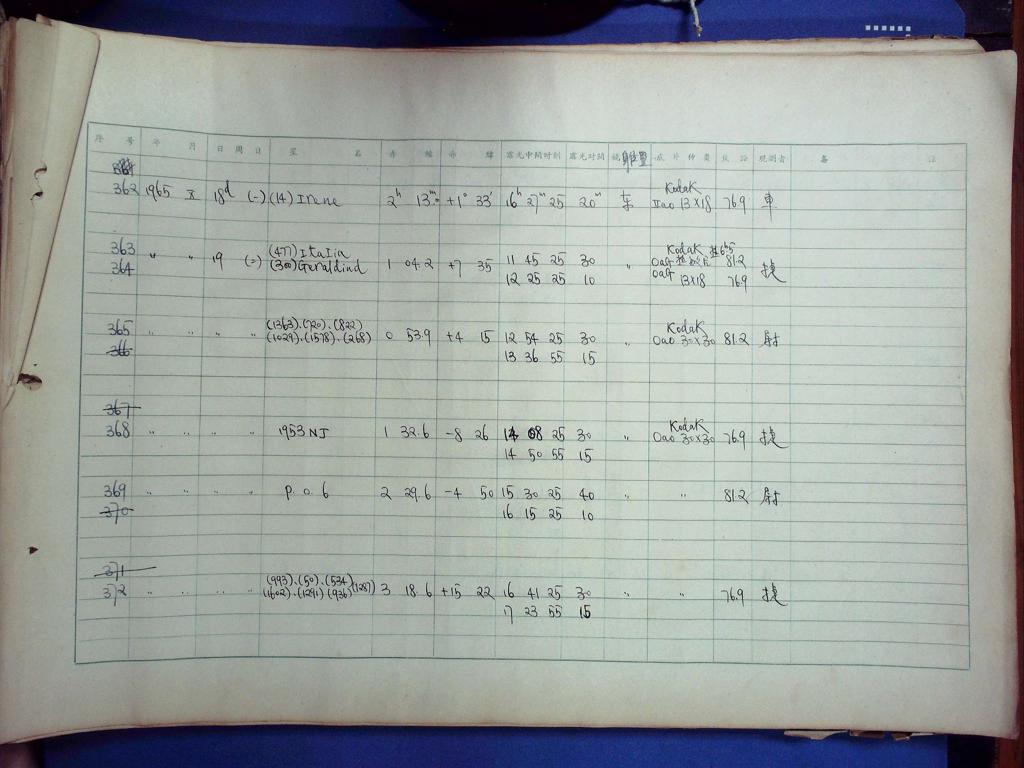 序 号 年 月 日 周日 星 名 赤 经 赤 纬 露光中间时刻 露光时间 镜 底片种类 观测者 备 注
Kodak
362 1965 X 18d (-) (14) Irene 2h 13m. +1° 33' 16h 27m 25 20m IIao 13×18 76.9 車
363 (477) Italia Kodak
364 " " 19 (=) (300) Geraldina 1 04.2 +7 35 11 45 25 30 " 81.2
12 25 25 10 13×18 76.9 捷
365 (1363).(720).(822) Kodak
" " " " (1029).(1578).(268) 0 53.9 +4 15 12 54 25 30 " Oao 30×30 81.2 尉
366 13 36 55 15
367 Kodak
368 " " " " 1953 NJ 1 32.6 -8 26 14 08 25 30 " Oao 30×30 76.9 捷
14 50 55 15
369 " " " " P. 0. 6 2 29.6 -4 50 15 30 25 40 " " 81.2 尉
370 16 15 25 10
371 (993).(50).(534)
372 " " " " (1602).(1291) (936) (1287) 3 18.6 +15 22 16 41 25 30 " " 76.9 捷
17 23 55 15